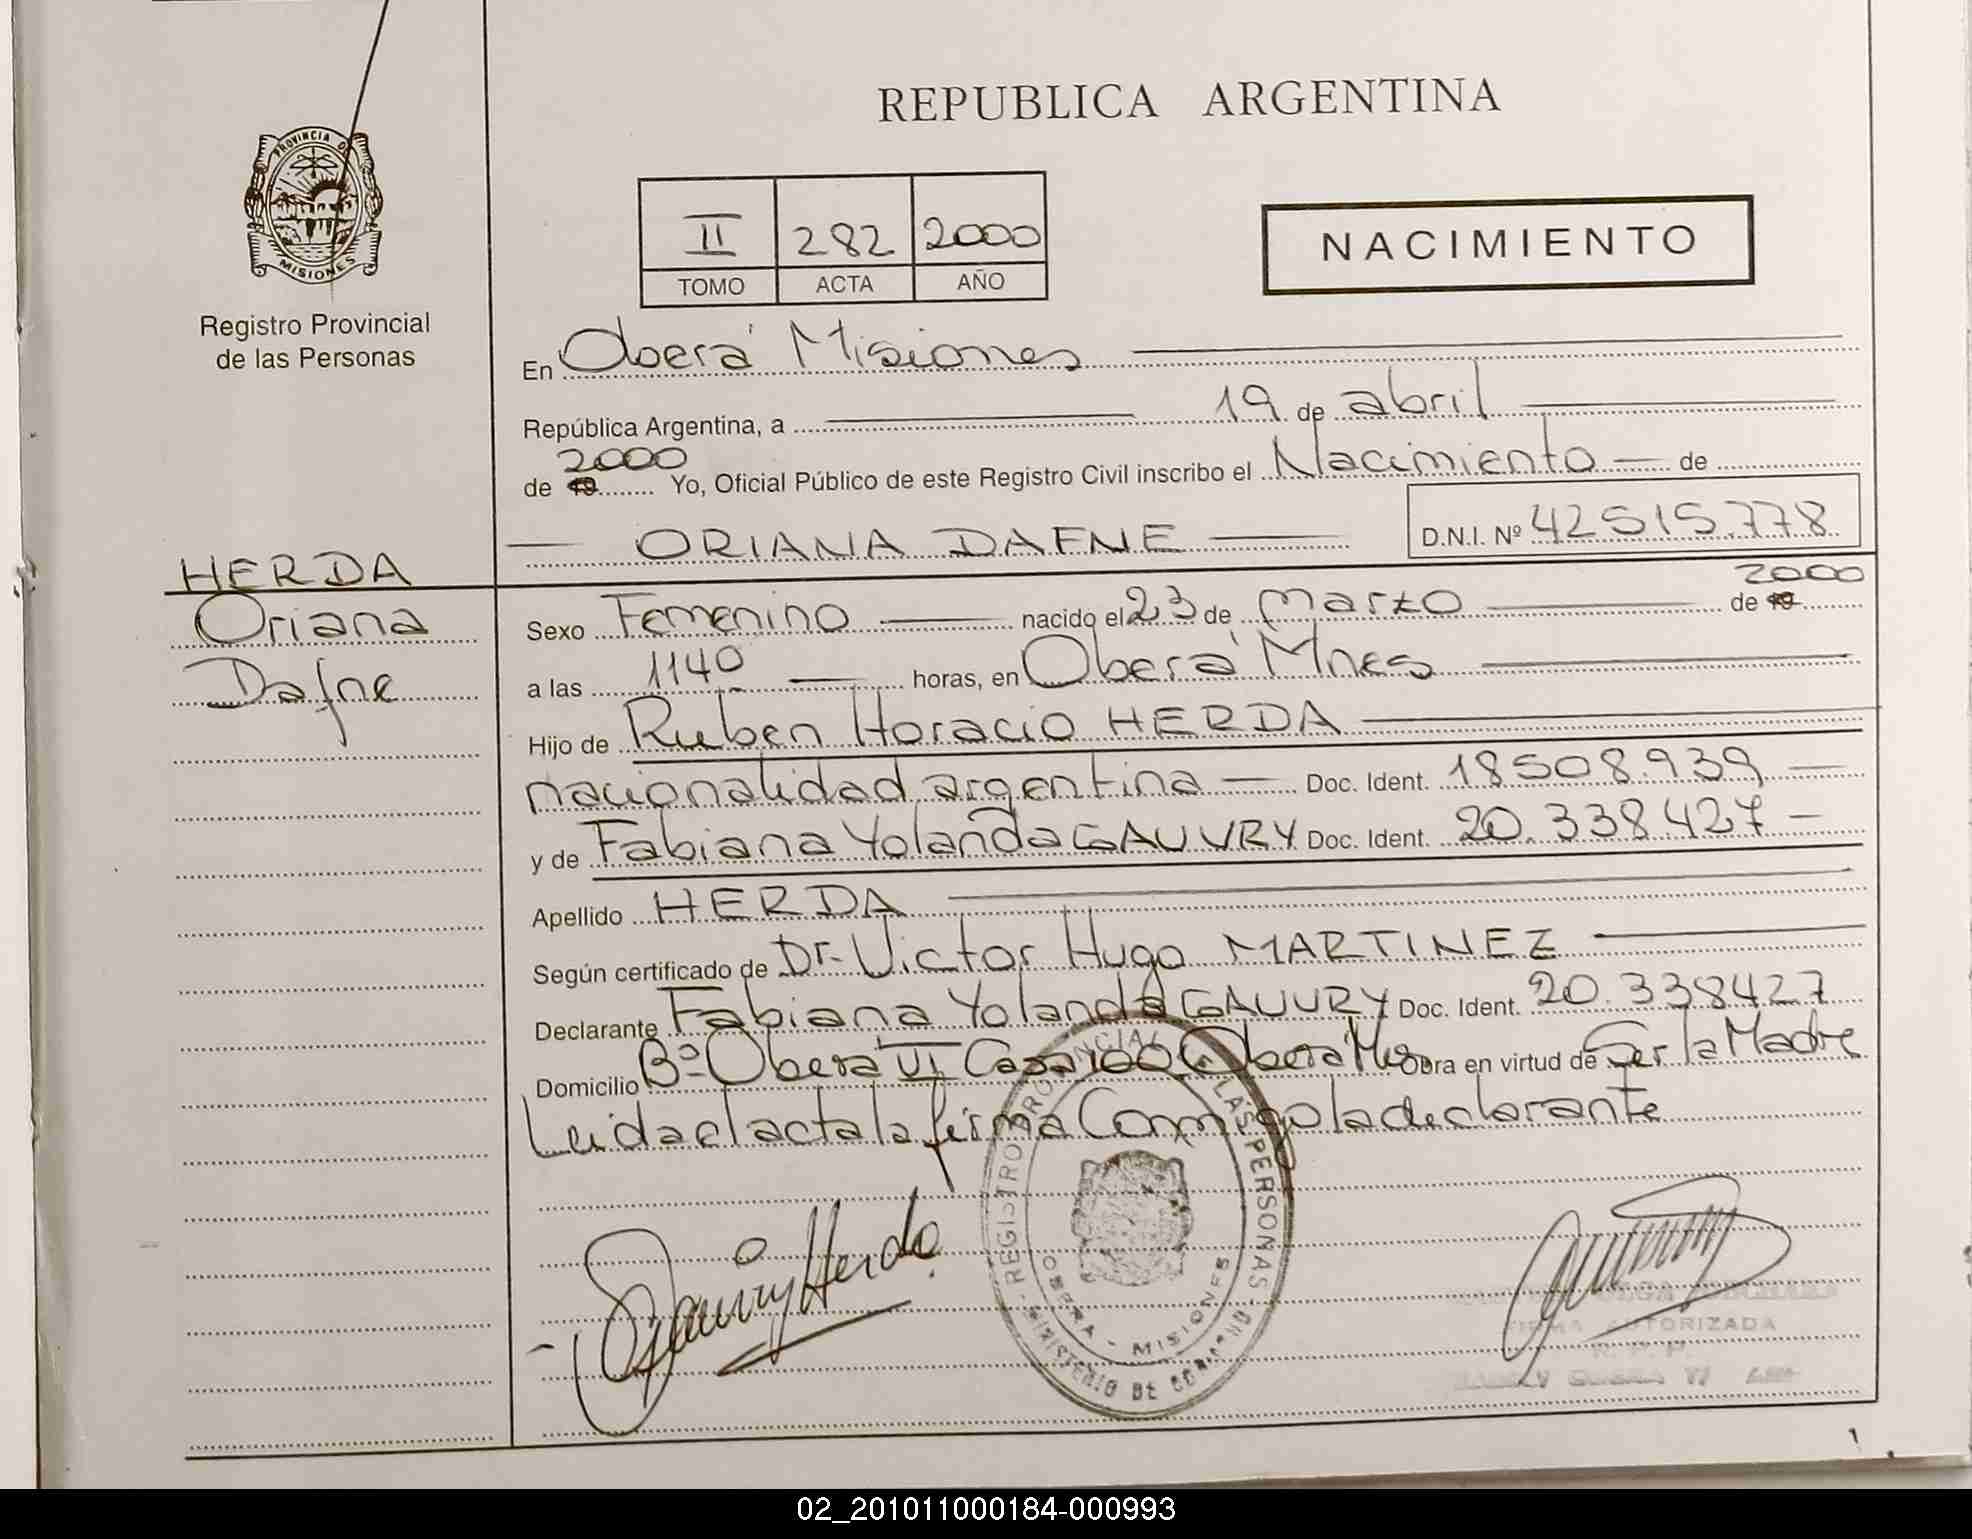 REPUBLICA ARGENTINA
PROVINCIA DE
MISIONES
Registro Provincial
de las Personas
II 282 2000
TOMO ACTA AÑO
NACIMIENTO
En Oberá Misiones
República Argentina, a 19 de abril
2000
de 19 Yo, Oficial Público de este Registro Civil inscribo el Nacimiento de
ORIANA DAFNE D.N.I. Nº 42515.778
HERDA
Oriana
Dafne
2000
Sexo Femenino nacido el 23 de marzo de 19
a las 1140 horas, en Oberá Mnes
Hijo de Ruben Horacio HERDA
nacionalidad argentina Doc. Ident. 18508.939
y de Fabiana Yolanda GAUVRY Doc. Ident. 20.338427
Apellido HERDA
Según certificado de Dr. Victor Hugo MARTINEZ
Declarante Fabiana Yolanda GAUVRY Doc. Ident. 20.338427
Domicilio Bº Oberá VI Casa 100 Oberá Obra en virtud de Ser la Madre
Leida el acta la firma Conmigo la declarante
Gauvry Herda
REGISTRO PROVINCIAL LAS PERSONAS
MINISTERIO DE
OBERA - MISIONES
FIRMA AUTORIZADA
R. P. P.
02_201011000184-000993